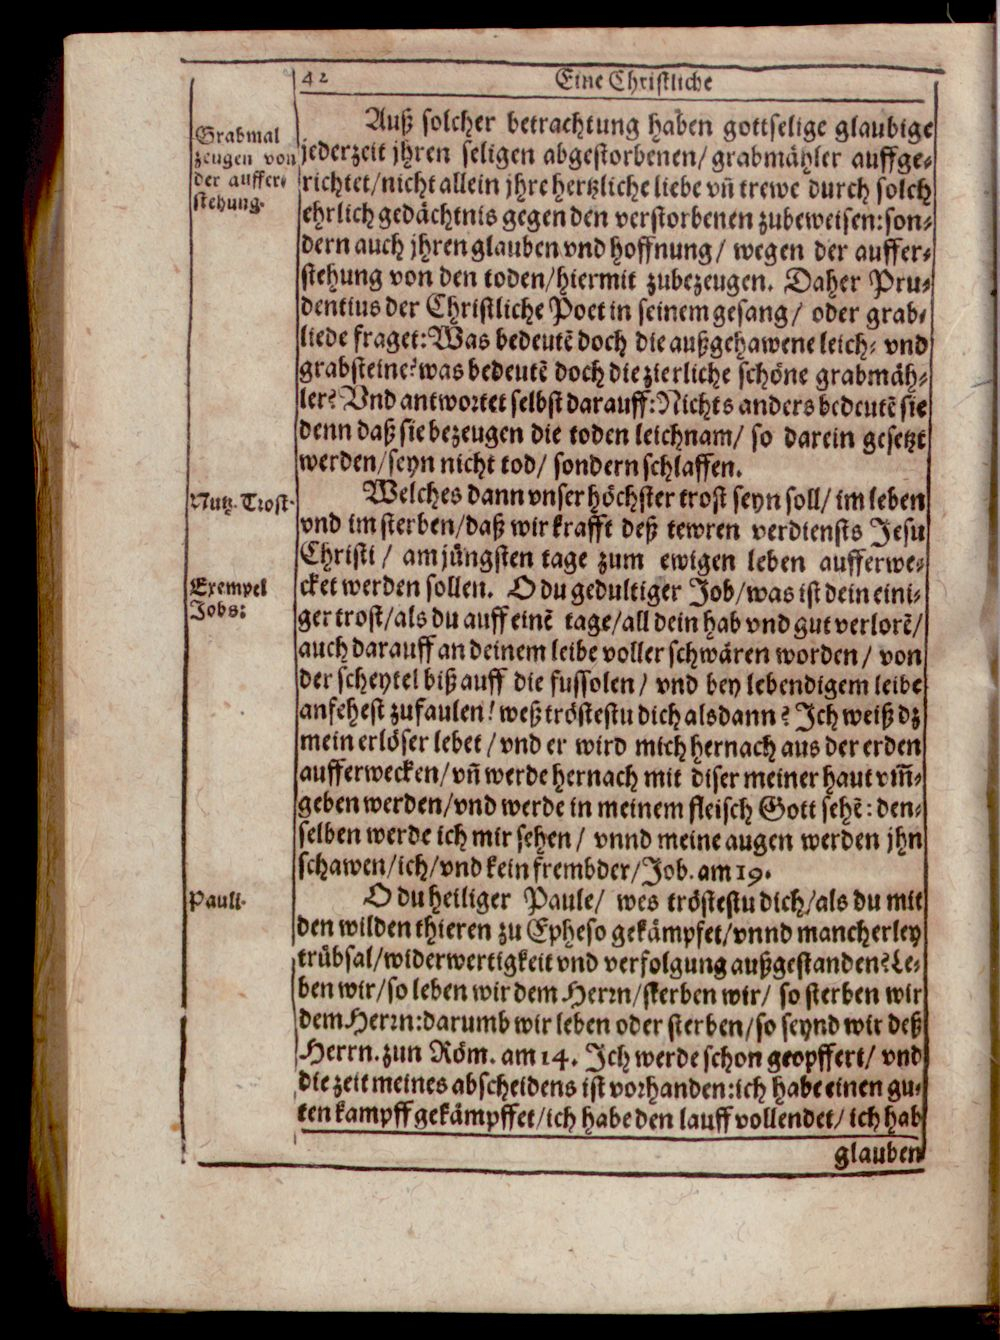 42 Eine Christliche
Grabmal
zeugen von
der auffer⸗
stehung.
Auß solcher betrachtung haben gottselige glaubige
jederzeit jhren seligen abgestorbenen/ grabmähler auffge⸗
richtet/nicht allein jhre hertzliche liebe vñ trewe durch solch
ehrlich gedächtnis gegen den verstorbenen zubeweisen: son⸗
dern auch jhren glauben vnd hoffnung/ wegen der auffer⸗
stehung von den toden/hiermit zubezeugen. Daher Pru⸗
dentius der Christliche Poet in seinem gesang/ oder grab⸗
liede fraget: Was bedeutẽ doch die außgehawene leich⸗ vnd
grabsteine? was bedeutẽ doch die zierliche schöne grabmäh⸗
ler? Vnd antwortet selbst darauff: Nichts anders bedeutẽ sie
denn daß sie bezeugen die toden leichnam/ so darein gesetzt
werden/seyn nicht tod/ sondern schlaffen.
Nutz. Trost.
Welches dann vnser höchster trost seyn soll/ im leben
vnd im sterben/daß wir krafft deß tewren verdiensts Jesu
Christi/ am jüngsten tage zum ewigen leben aufferwe⸗
Exempel
Jobs:
cket werden sollen. O du gedultiger Job/was ist dein eini⸗
ger trost/als du auff einẽ tage/all dein hab vnd gut verlorẽ/
auch darauff an deinem leibe voller schwären worden/ von
der scheytel biß auff die fussolen/ vnd bey lebendigem leibe
anfehest zufaulen! weß tröstestu dich alsdann? Ich weiß dz
mein erlöser lebet/vnd er wird mich hernach aus der erden
aufferwecken/vñ werde hernach mit diser meiner haut vm̃⸗
geben werden/vnd werde in meinem fleisch Gott sehẽ: den⸗
selben werde ich mir sehen/ vnnd meine augen werden jhn
schawen/ich/vnd kein frembder/Job. am 19.
Pauli.
O du heiliger Paule/ wes tröstestu dich/als du mit
den wilden thieren zu Epheso gekämpfet/vnnd mancherley
trübsal/widerwertigkeit vnd verfolgung außgestanden? Le⸗
ben wir/so leben wir dem Herrn/sterben wir/ so sterben wir
dem Herrn: darumb wir leben oder sterben/so seynd wir deß
Herrn. zun Röm. am 14. Ich werde schon geopffert/ vnd
die zeit meines abscheidens ist vorhanden: ich habe einen gu⸗
ten kampff gekämpffet/ich habe den lauff vollendet/ ich hab
glauben